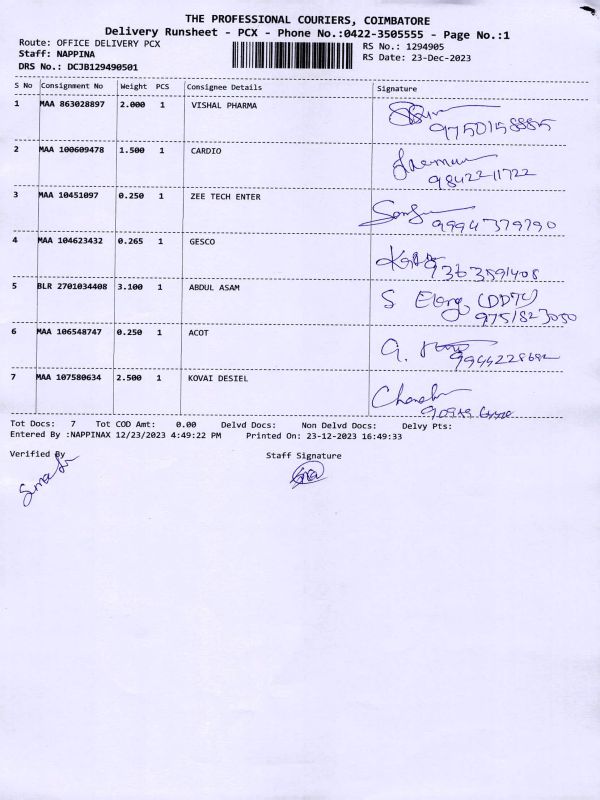 THE PROFESSIONAL COURIERS, COIMBATORE
Delivery Runsheet - PCX - Phone No.:0422-3505555 - Page No.:1
Route: OFFICE DELIVERY PCX
RS No.: 1294905
Staff: NAPPINA
RS Date: 23-Dec-2023
DRS No.: DCJB129490501
S No Consignment No Weight PCS Consignee Details Signature
1 MAA 863028897 2.000 1 VISHAL PHARMA
9750158885
2 MAA 100609478 1.500 1 CARDIO
9842211722
3 MAA 10451097 0.250 1 ZEE TECH ENTER
9994379790
4 MAA 104623432 0.265 1 GESCO
9363591408
5 BLR 2701034408 3.100 1 ABDUL ASAM
S
9751823050
6 MAA 106548747 0.250 1 ACOT
7 MAA 107580634 2.500 1 KOVAI DESIEL
Tot Docs: 7 Tot COD Amt: 0.00 Delvd Docs: Non Delvd Docs: Delvy Pts:
Entered By :NAPPINAX 12/23/2023 4:49:22 PM Printed On: 23-12-2023 16:49:33
Verified By Staff Signature